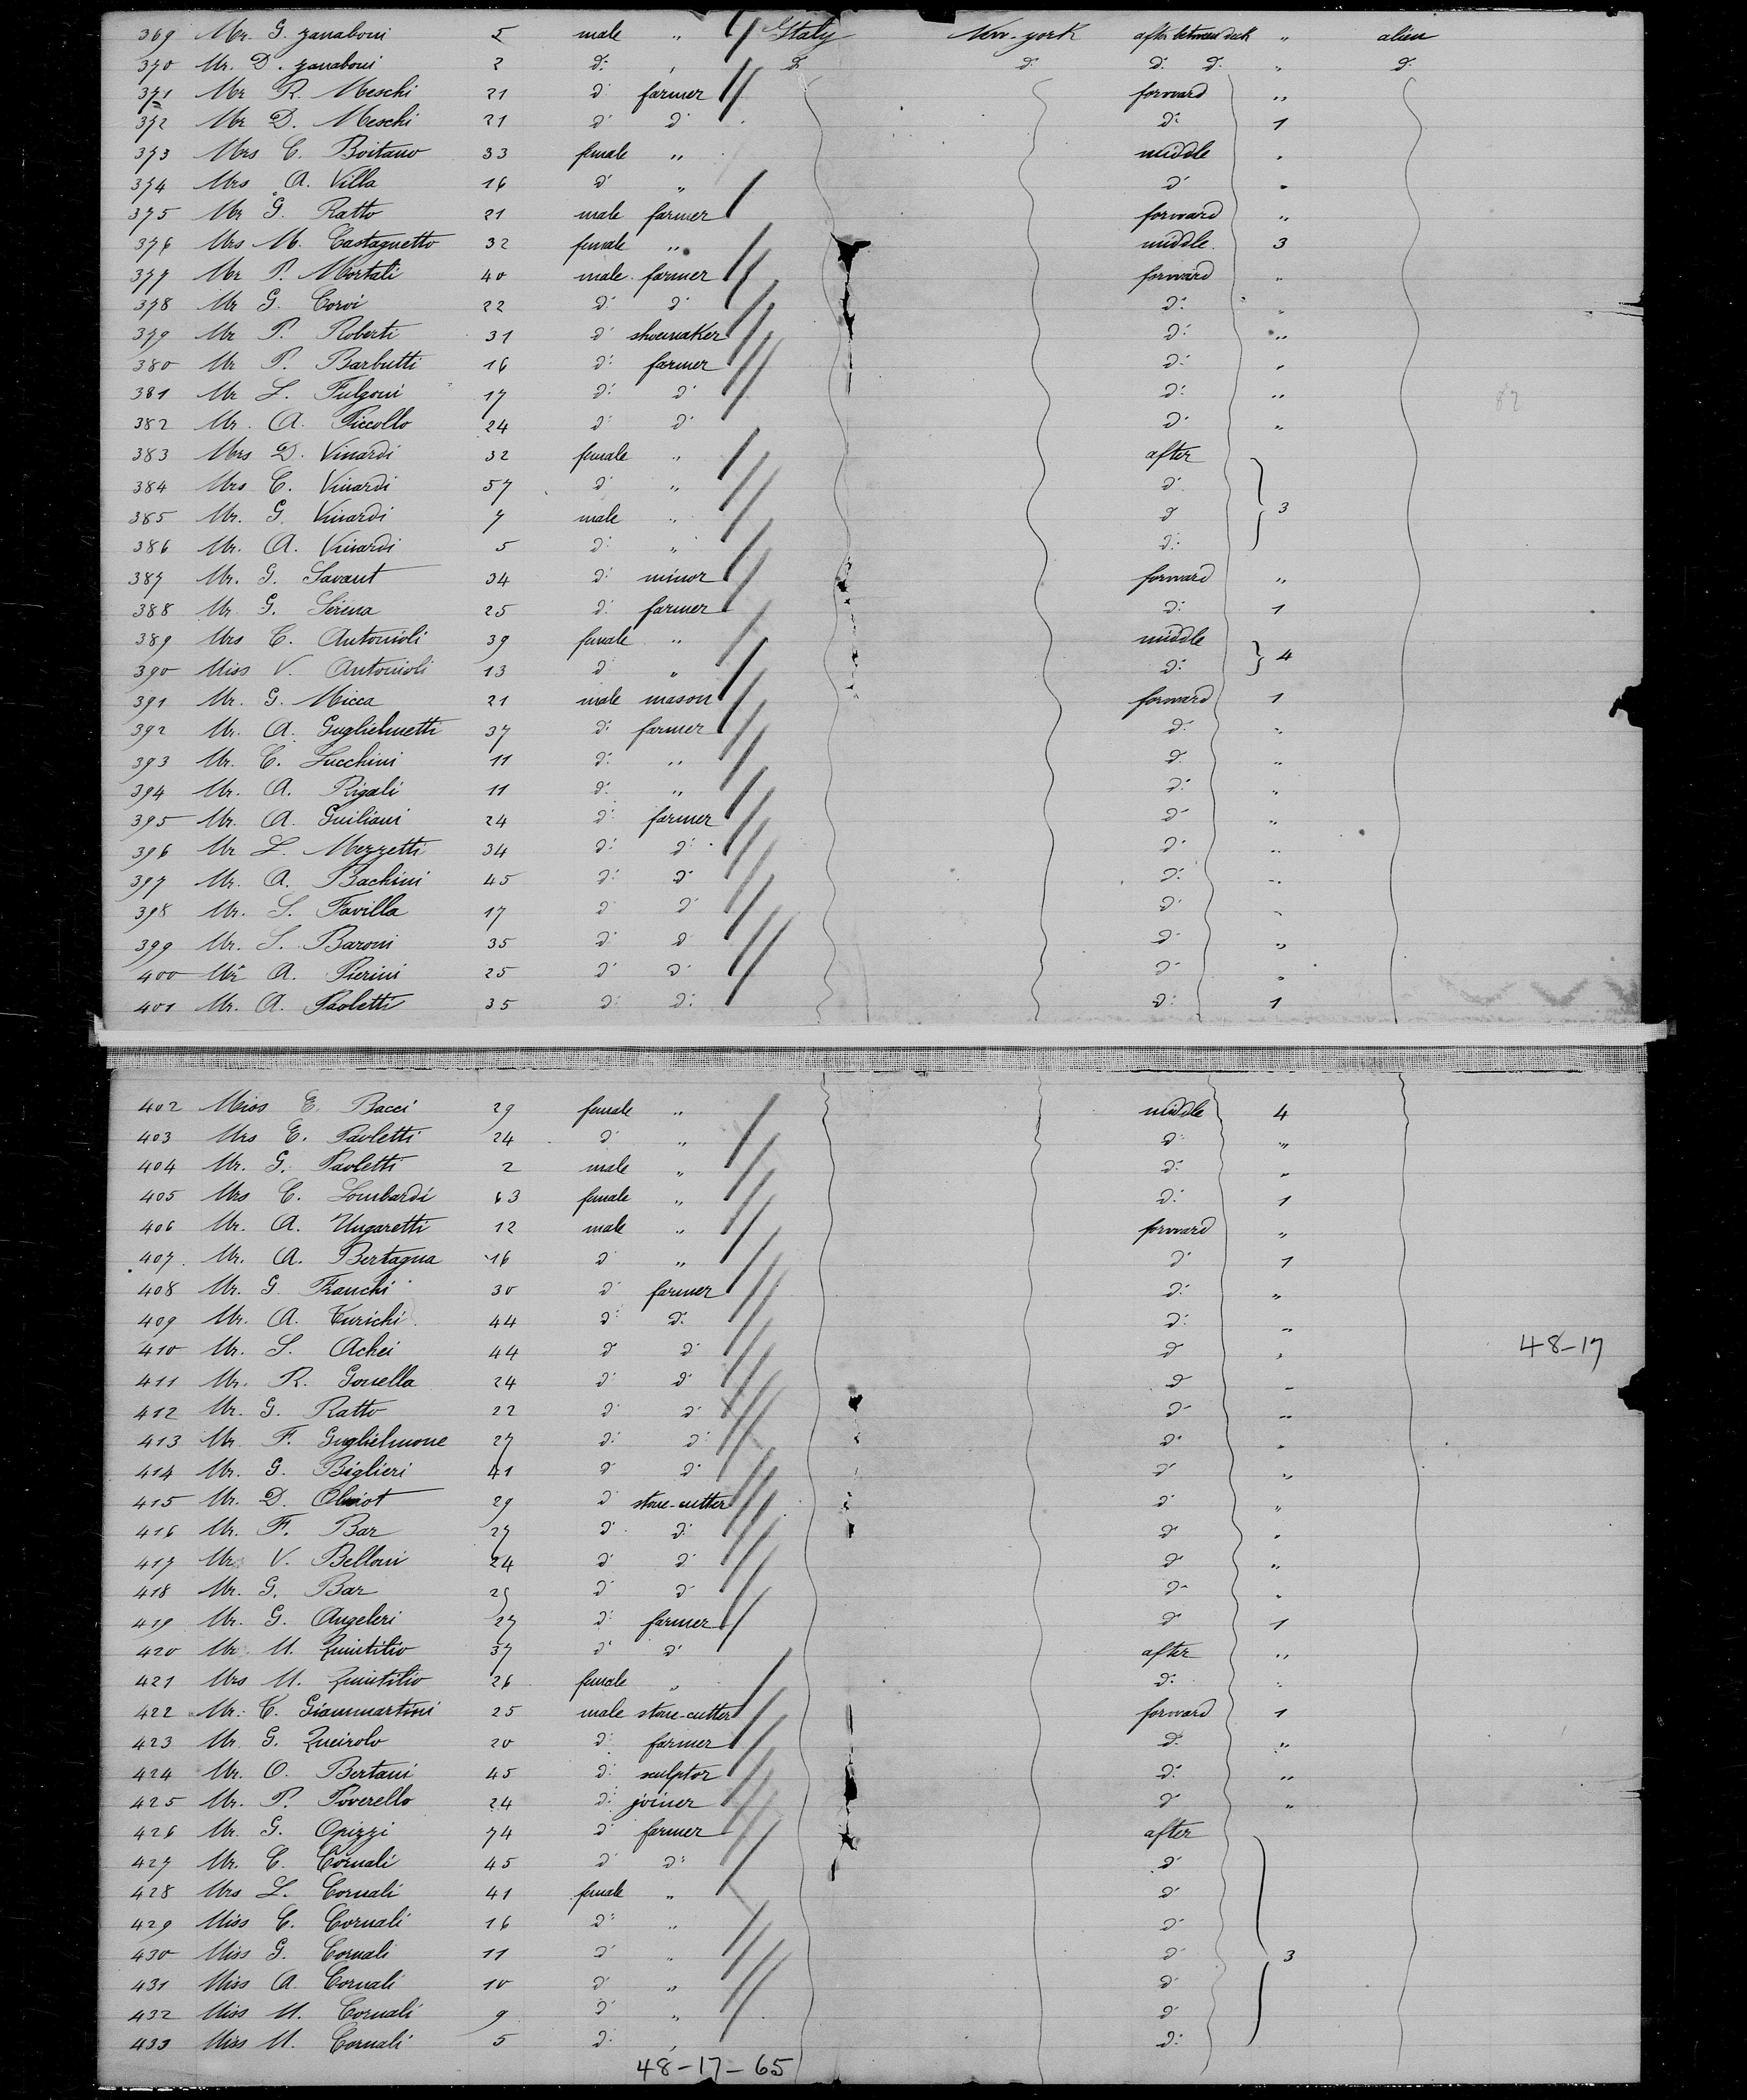 369 Mr. G. Zanaboni 5 male " Italy New-York after between deck " alien
370 Mr. D. Zanaboni 2 d: " d: d: d: d: " d:
371 Mr R. Meschi 21 d: farmer forward "
372 Mr D. Meschi 21 d: d: d: 1
373 Mrs C. Boitano 33 female " middle "
374 Mrs A. Villa 16 d: " d: "
375 Mr G. Ratto 21 male farmer forward "
376 Mrs M. Castagnetto 32 female " middle 3
377 Mr P. Mortali 40 male farmer forward "
378 Mr G. Corvi 22 d: d: d: "
379 Mr P. Roberti 31 d: shoemaker d: "
380 Mr P. Barbutti 16 d: farmer d: "
381 Mr L. Fulgoni 17 d: d: d: "
382 Mr. A. Piccollo 24 d: d: d: "
383 Mrs D. Vinardi 32 female " after
384 Mrs C. Vinardi 57 d: " d:
385 Mr. G. Vinardi 7 male " d: 3
386 Mr. A. Vinardi 5 d: " d:
387 Mr. G. Savant 34 d: minor forward "
388 Mr. G. Serena 25 d: farmer d: 1
389 Mrs C. Antonioli 39 female " middle
390 Miss V. Antonioli 13 d: " d: 4
391 Mr. G. Micca 21 male mason forward 1
392 Mr. A. Guglielmetti 37 d: farmer d: "
393 Mr. C. Lucchini 11 d: " d: "
394 Mr. A. Rigali 11 d: " d: "
395 Mr. A. Guiliani 24 d: farmer d: "
396 Mr L. Mezzetti 34 d: d: d: "
397 Mr. A. Bachini 45 d: d: d: "
398 Mr. S. Favilla 17 d: d: d: "
399 Mr. S. Baroni 35 d: d: d: "
400 Mr A. Pierini 25 d: d: d: "
401 Mr. A. Paoletti 35 d: d: d: 1
402 Miss E. Bacci 29 female " middle 4
403 Mrs E. Paoletti 24 d: " d: "
404 Mr. G. Paoletti 2 male " d: "
405 Mrs C. Lombardi 63 female " d: 1
406 Mr. A. Ungaretti 12 male " forward "
407. Mr. A. Bertagna 16 d: " d: 1
408 Mr. G. Franchi 30 d: farmer d: "
409 Mr. A. 44 d: d: d: "
410 Mr. S. Achei 44 d: d: d: " 48-17
411 Mr. R. Gonella 24 d: d: d: "
412 Mr. G. Ratto 22 d: d: d: "
413 Mr. F. Guglielmone 27 d: d: d: "
414 Mr. G. Biglieri 41 d: d: d: "
415 Mr. D. 29 d: stone-cutter d: "
416 Mr. F. Bar 27 d: d: d: "
417 Mr. V. Belloni 24 d: d: d: "
418 Mr. G. Bar d: d: d: "
419 Mr. G. Angeleri 27 d: farmer d: 1
420 Mr. M. Quintilio 37 d: d: after "
421 Mrs M. Quintilio 26 female " d: "
422 Mr. C. Giammartini 25 male stone-cutter forward 1
423 Mr. G. Queirolo 20 d: farmer d: "
424 Mr. O. Bertani 45 d: sculptor d: "
425 Mr. P. Poverello 24 d: joiner d: "
426 Mr. G. Opizzi 74 d: farmer after
427 Mr. C. Cornali 45 d: d: d:
428 Mrs L. Cornali 41 female " d:
429 Miss C. Cornali 16 d: " d:
430 Miss G. Cornali 11 d: " d: 3
431 Miss A. Cornali 10 d: " d:
432 Miss M. Cornali 9 d: " d:
433 Miss M. Cornali 5 d: " d:
48-17-65